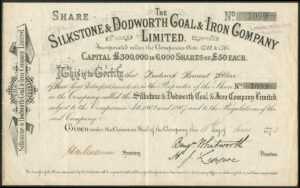 SHARE
No 1099
THE
SILKSTONE & DODWORTH COAL & IRON COMPANY
LIMITED.
Incorporated under the Companies Acts, 1862 & 1867.
CAPITAL £300,000 IN 6,000 SHARES OF £50 EACH.
This is to Certify that Frederick Howard
is the Proprietor of the Share
No 1099 in the Silkstone & Dodworth Coal & Iron Company Limited,
subject to the Companies Acts 1862 and 1867 and to the Regulations of the
said Company.
GIVEN under the Common Seal of the Company this day of June 187
Secretary
Benj Whitworth
Directors
Silkstone & Dodworth Coal & Iron Company
Limited